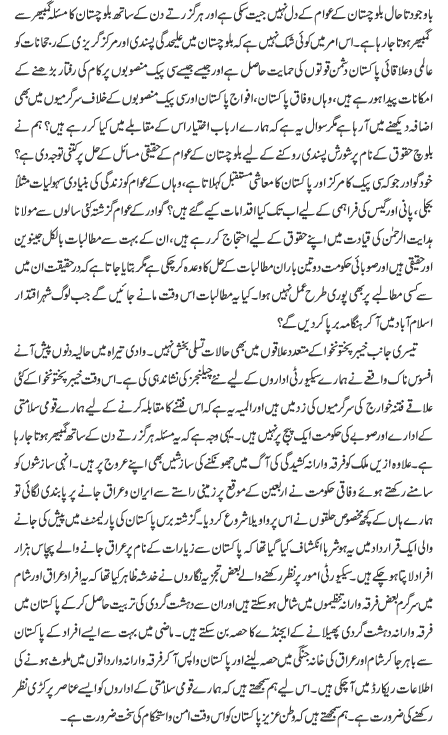 باوجود تاحال بلوچستان کے عوام کے دل نہیں جیت سکی ہے اور ہر گزرتے دن کے ساتھ بلوچستان کا مسئلہ گمبھیر سے
گمبھیر ہوتا جارہا ہے۔ اس امر میں کوئی شک نہیں ہے کہ بلوچستان میں علیحدگی پسندی اور مرکز گریزی کے رجحانات کو
عالمی وعلاقائی پاکستان دشمن قوتوں کی حمایت حاصل ہے اور جیسے جیسے سی پیک منصوبوں پر کام کی رفتار بڑھنے کے
امکانات پیدا ہورہے ہیں، وہاں وفاق پاکستان، افواج پاکستان اور سی پیک منصوبوں کے خلاف سرگرمیوں میں بھی
اضافہ دیکھنے میں آرہا ہے مگر سوال یہ ہے کہ ہمارے ارباب اختیار اس کے مقابلے میں کیا کررہے ہیں؟ ہم نے
بلوچ حقوق کے نام پر شورش پسندی روکنے کے لیے بلوچستان کے عوام کے حقیقی مسائل کے حل پر کتنی توجہ دی ہے؟
خود گوادر جو کہ سی پیک کا مرکز اور پاکستان کا معاشی مستقبل کہلاتا ہے، وہاں کے عوام کو زندگی کی بنیادی سہولیات مثلاً
بجلی، پانی اور گیس کی فراہمی کے لیے اب تک کیا اقدامات کیے گئے ہیں؟ گوادر کے عوام گزشتہ کئی سالوں سے مولانا
ہدایت الرحمٰن کی قیادت میں اپنے حقوق کے لیے احتجاج کررہے ہیں، ان کے بہت سے مطالبات بالکل جینوین
اور حقیقی ہیں اور صوبائی حکومت دو تین بار ان مطالبات کے حل کا وعدہ کرچکی ہے مگر بتایا جاتا ہے کہ درحقیقت ان میں
سے کسی مطالبے پر بھی پوری طرح عمل نہیں ہوا۔ کیا یہ مطالبات اس وقت مانے جائیں گے جب لوگ شہر اقتدار
اسلام آباد میں آکر ہنگامہ برپا کردیں گے؟
تیسری جانب خیبر پختونخوا کے متعدد علاقوں میں بھی حالات تسلی بخش نہیں۔ وادی تیراہ میں حالیہ دنوں پیش آنے
افسوس ناک واقعے نے ہمارے سیکیورٹی اداروں کے لیے نئے چیلنجز کی نشاندہی کی ہے۔ اس وقت خیبر پختونخوا کے کئی
علاقے فتنہ خوارج کی سرگرمیوں کی زد میں ہیں اور المیہ یہ ہے کہ اس فتنے کا مقابلہ کرنے کے لیے ہمارے قومی سلامتی
کے ادارے اور صوبے کی حکومت ایک پیج پر نہیں ہیں۔ یہی وجہ ہے کہ یہ مسئلہ ہر گزرتے دن کے ساتھ گمبھیر ہوتا جارہا
ہے۔ علاوہ ازیں ملک کو فرقہ وارانہ کشیدگی کی آگ میں جھونکنے کی سازشیں بھی اپنے عروج پر ہیں۔ انہی سازشوں کو
سامنے رکھتے ہوئے وفاقی حکومت نے اربعین کے موقع پر زمینی راستے سے ایران وعراق جانے پر پابندی لگائی تو
ہمارے ہاں کے کچھ مخصوص حلقوں نے اس پر واویلا شروع کردیا۔ گزشتہ برس پاکستان کی پارلیمنٹ میں پیش کی جانے
والی ایک قرارداد میں یہ ہوشربا انکشاف کیا گیا تھا کہ پاکستان سے زیارات کے نام پر عراق جانے والے پچاس ہزار
افراد لاپتا ہوچکے ہیں۔ سیکیورٹی امور پر نظر رکھنے والے بعض تجزیہ نگاروں نے خدشہ ظاہر کیا تھا کہ یہ افراد عراق اور شام
میں سرگرم بعض فرقہ وارانہ تنظیموں میں شامل ہوسکتے ہیں اور ان سے دہشت گردی کی تربیت حاصل کرکے پاکستان میں
فرقہ وارانہ دہشت گردی پھیلانے کے ایجنڈے کا حصہ بن سکتے ہیں۔ ماضی میں بہت سے ایسے افراد کے پاکستان
سے باہر جاکر شام اور عراق کی خانہ جنگی میں حصہ لینے اور پاکستان واپس آکر فرقہ وارانہ وارداتوں میں ملوث ہونے کی
اطلاعات ریکارڈ میں آچکی ہیں۔ اس لیے ہم سمجھتے ہیں کہ ہمارے قومی سلامتی کے اداروں کو ایسے عناصر پر کڑی نظر
رکھنے کی ضرورت ہے۔ ہم سمجھتے ہیں کہ وطن عزیز پاکستان کو اس وقت امن و استحکام کی سخت ضرورت ہے۔